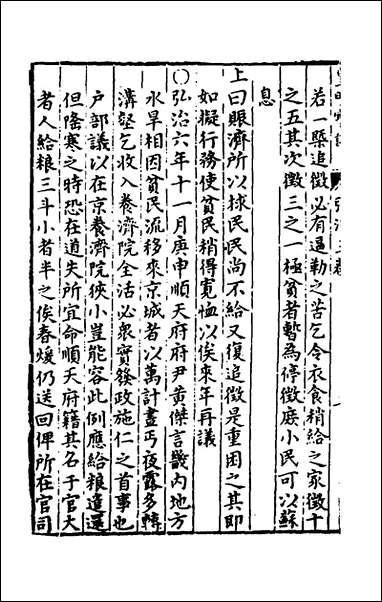 若一槩追徵必有逼勒之苦乞令衣食稍給之家徵十
之五其次徵三之一極貧者暫爲停徵庻小民可以蘇
息
上曰賑濟所以救民民尚不給又復追徵是重困之其即
如擬行務使貧民稍得寛恤以俟來年再議
○弘治六年十一月庚申順天府府尹黃傑言畿內地方
水旱相因貧民流移來京城者以萬計晝丐夜露多轉
溝壑乞收入養濟院全活必衆實發政施仁之首事也
户部議以在京養濟院狹小豈能容此例應給粮遣還
但隆寒之時恐在道失所宜命順天府籍其名于官大
者人給粮三斗小者半之俟春煖仍送回俾所在官司